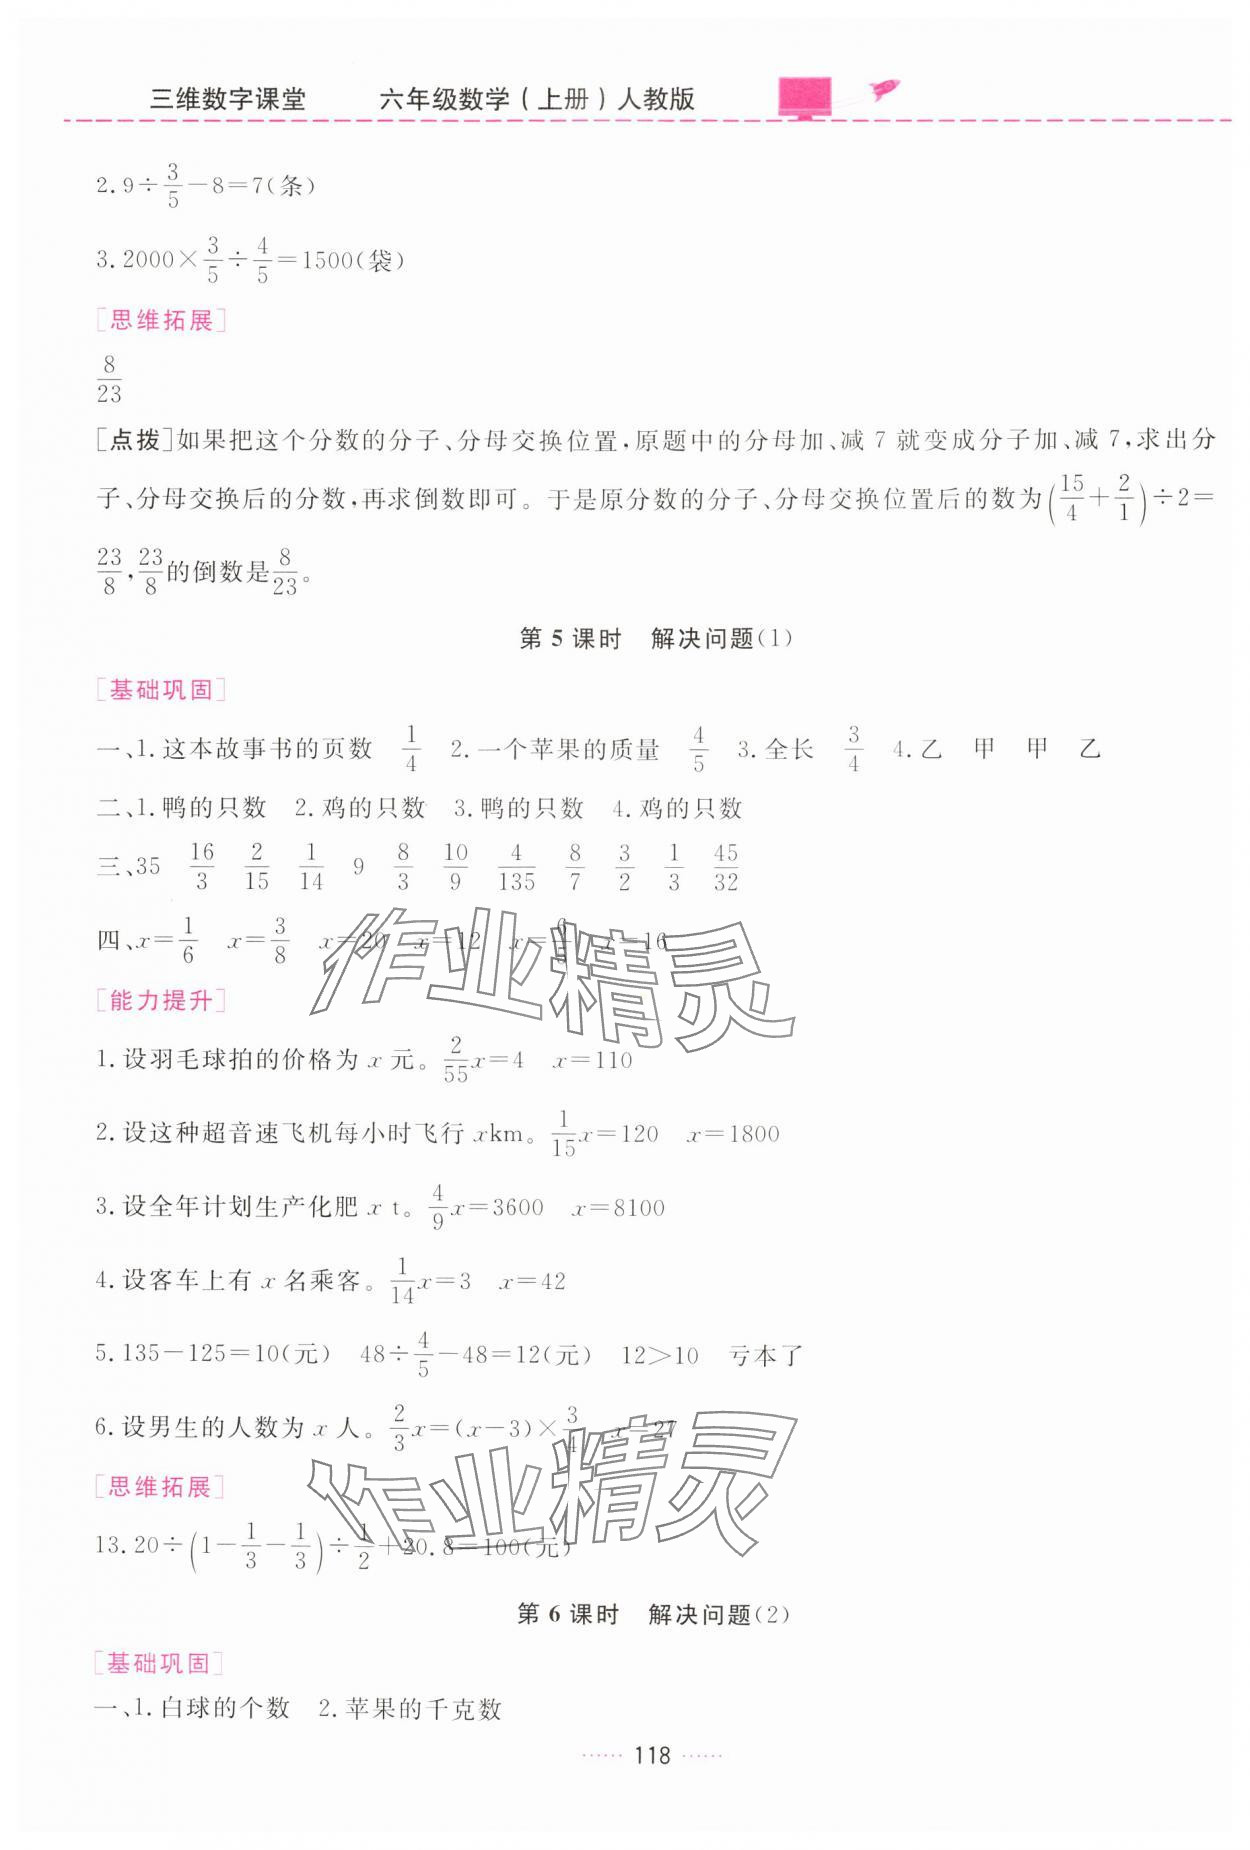 三维数字课堂　六年级数学(上册)人教版
2.9÷3/5－8＝7(条)
3.2000×3/5÷4/5＝1500(袋)
[思维拓展]
8/23
[点拨]如果把这个分数的分子、分母交换位置,原题中的分母加、减7就变成分子加、减7,求出分
子、分母交换后的分数,再求倒数即可。于是原分数的分子、分母交换位置后的数为(15/4＋2/1)÷2＝
23/8,23/8的倒数是8/23。
第5课时　解决问题(1)
[基础巩固]
一、1.这本故事书的页数　1/4　2.一个苹果的质量　4/5　3.全长　3/4　4.乙　甲　甲　乙
二、1.鸭的只数　2.鸡的只数　3.鸭的只数　4.鸡的只数
三、35　16/3　2/15　1/14　9　8/3　10/9　4/135　8/7　3/2　1/3　45/32
四、x＝1/6　x＝3/8　x＝20　x＝12　x＝6/5　x＝16
作业精灵
[能力提升]
1.设羽毛球拍的价格为x元。2/55x＝4　x＝110
2.设这种超音速飞机每小时飞行xkm。1/15x＝120　x＝1800
3.设全年计划生产化肥x t。4/9x＝3600　x＝8100
4.设客车上有x名乘客。1/14x＝3　x＝42
5.135－125＝10(元)　48÷4/5－48＝12(元)　12＞10　亏本了
6.设男生的人数为x人。2/3x＝(x－3)×3/4　x＝27
作业精灵
[思维拓展]
13.20÷(1－1/3－1/3)÷1/2＋20.8＝100(元)
第6课时　解决问题(2)
[基础巩固]
一、1.白球的个数　2.苹果的千克数
118